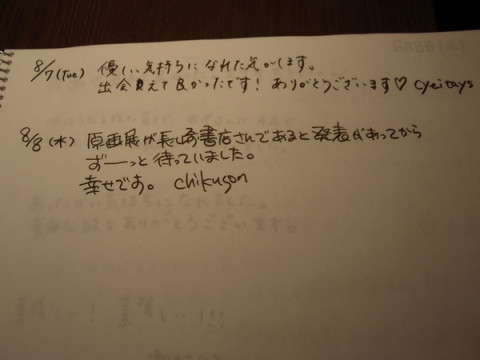 8/7(tue) 優しい気持ちになれた気がします。
出会えて良かったです! ありがとうございます♡
8/8(水) 原画展が長崎書店さんであると発表があってから
ずーっと待っていました。
幸せです。 chikugon